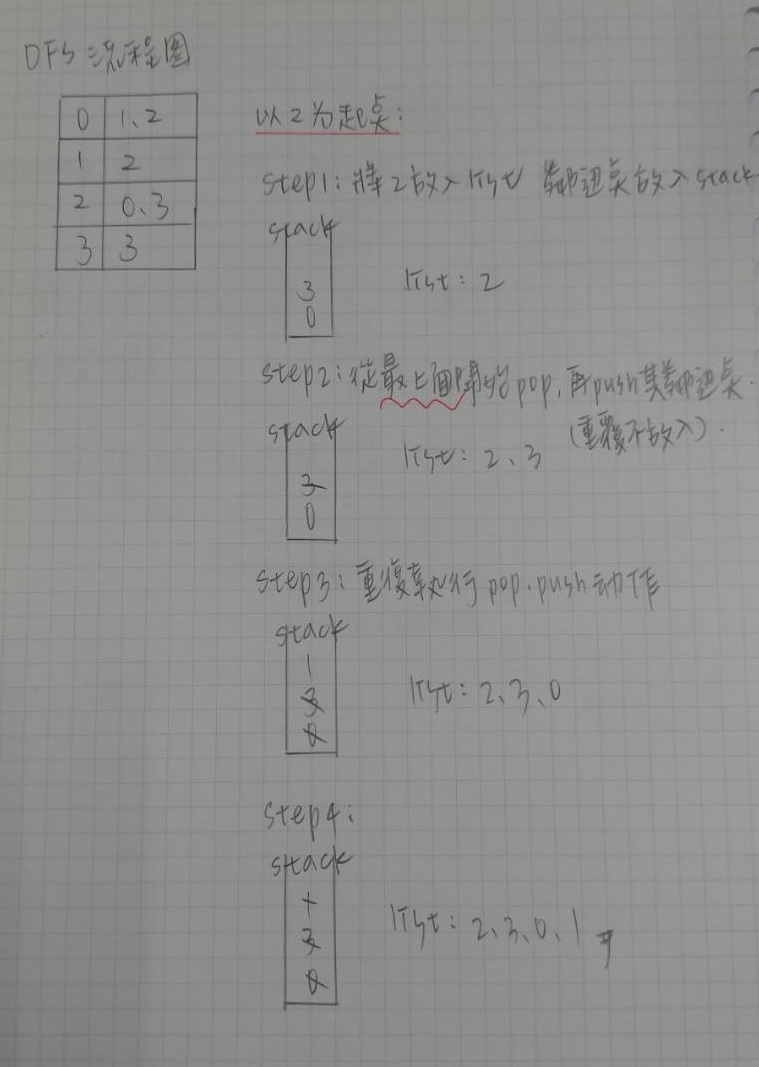 DFS 流程图
0 1、2
1 2
2 0、3
3 3
以2为起点:
step1: 将2放入list 鄰边点放入stack
stack
3
0
list: 2
step2: 從最上面開始pop,再push其鄰边点.
(重覆不放入).
stack
3
0
list: 2、3
step3: 重復執行 pop.push 动作
stack
1
3
0
list: 2、3、0
step4:
stack
1
3
0
list: 2、3、0、1